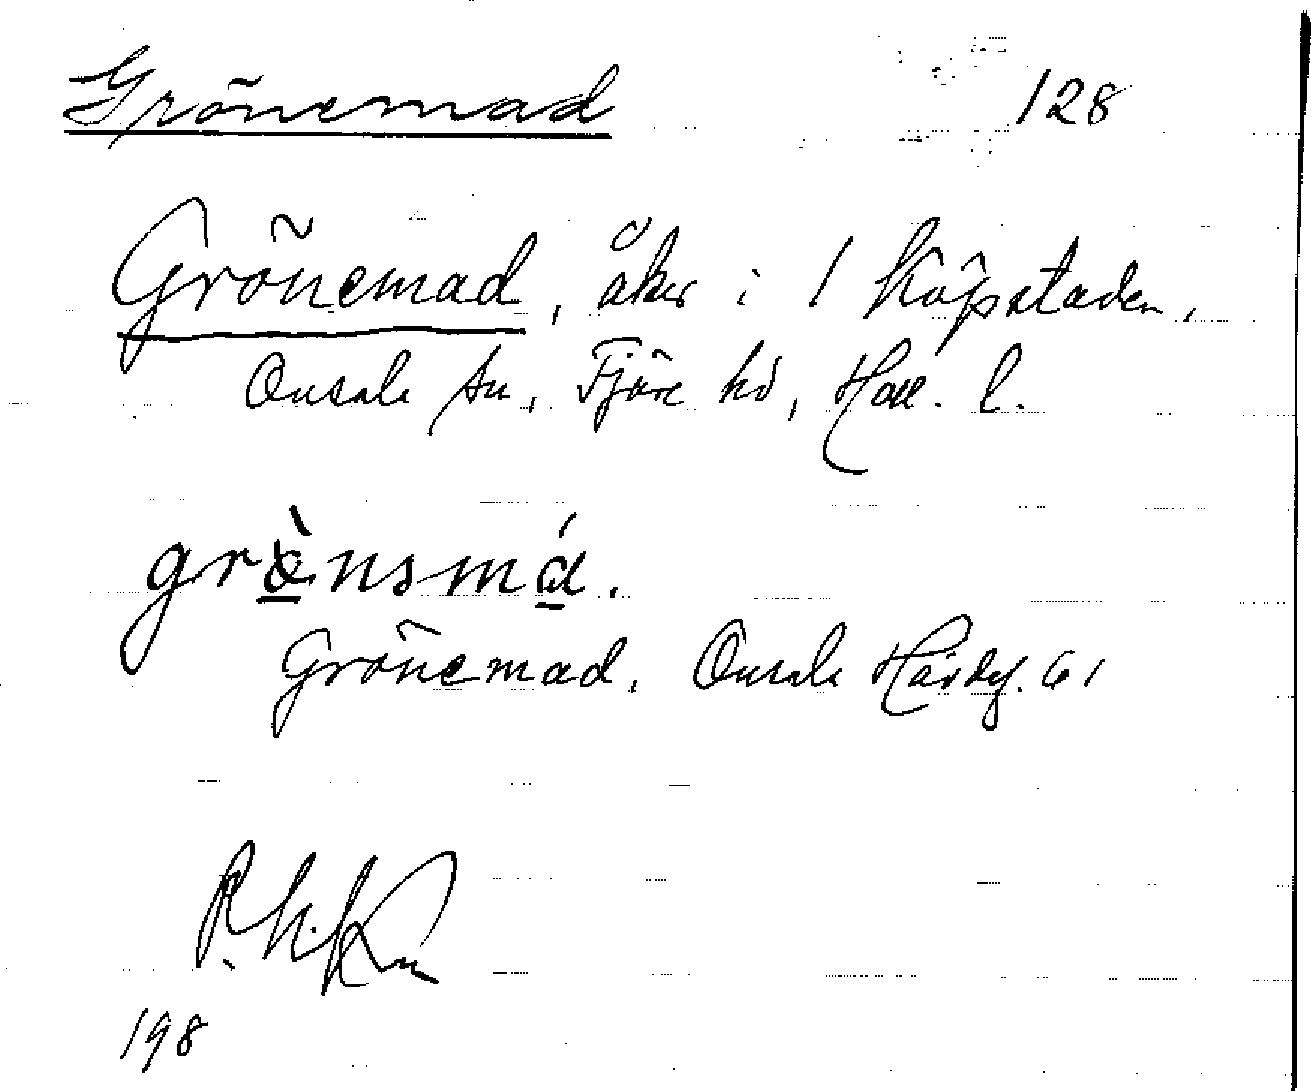 Grönemad 128
Grönemad, åker i 1 Köpstaden,
Onsala sn, Fjäre hd, Hall. l.
grö̀nəmá.
Grönemad. Onsala Hävdef. 61
198